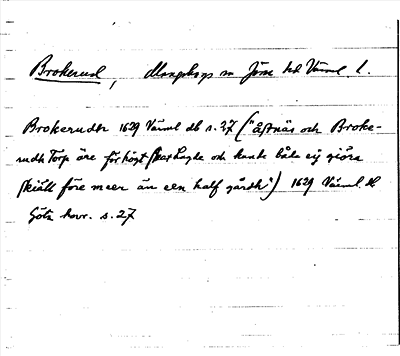 Brokerud, Mangskogs sn Jösse hd Värml. l.
Brokerudh 1629 Värml db s. 27 ("Åstnäs och Broke-
rudh Torp äre för högt skat Lagde och kunde både eij giöra
skiäll före meer än een half gårdh") 1629 Värml. db
Göta hovr. s. 27